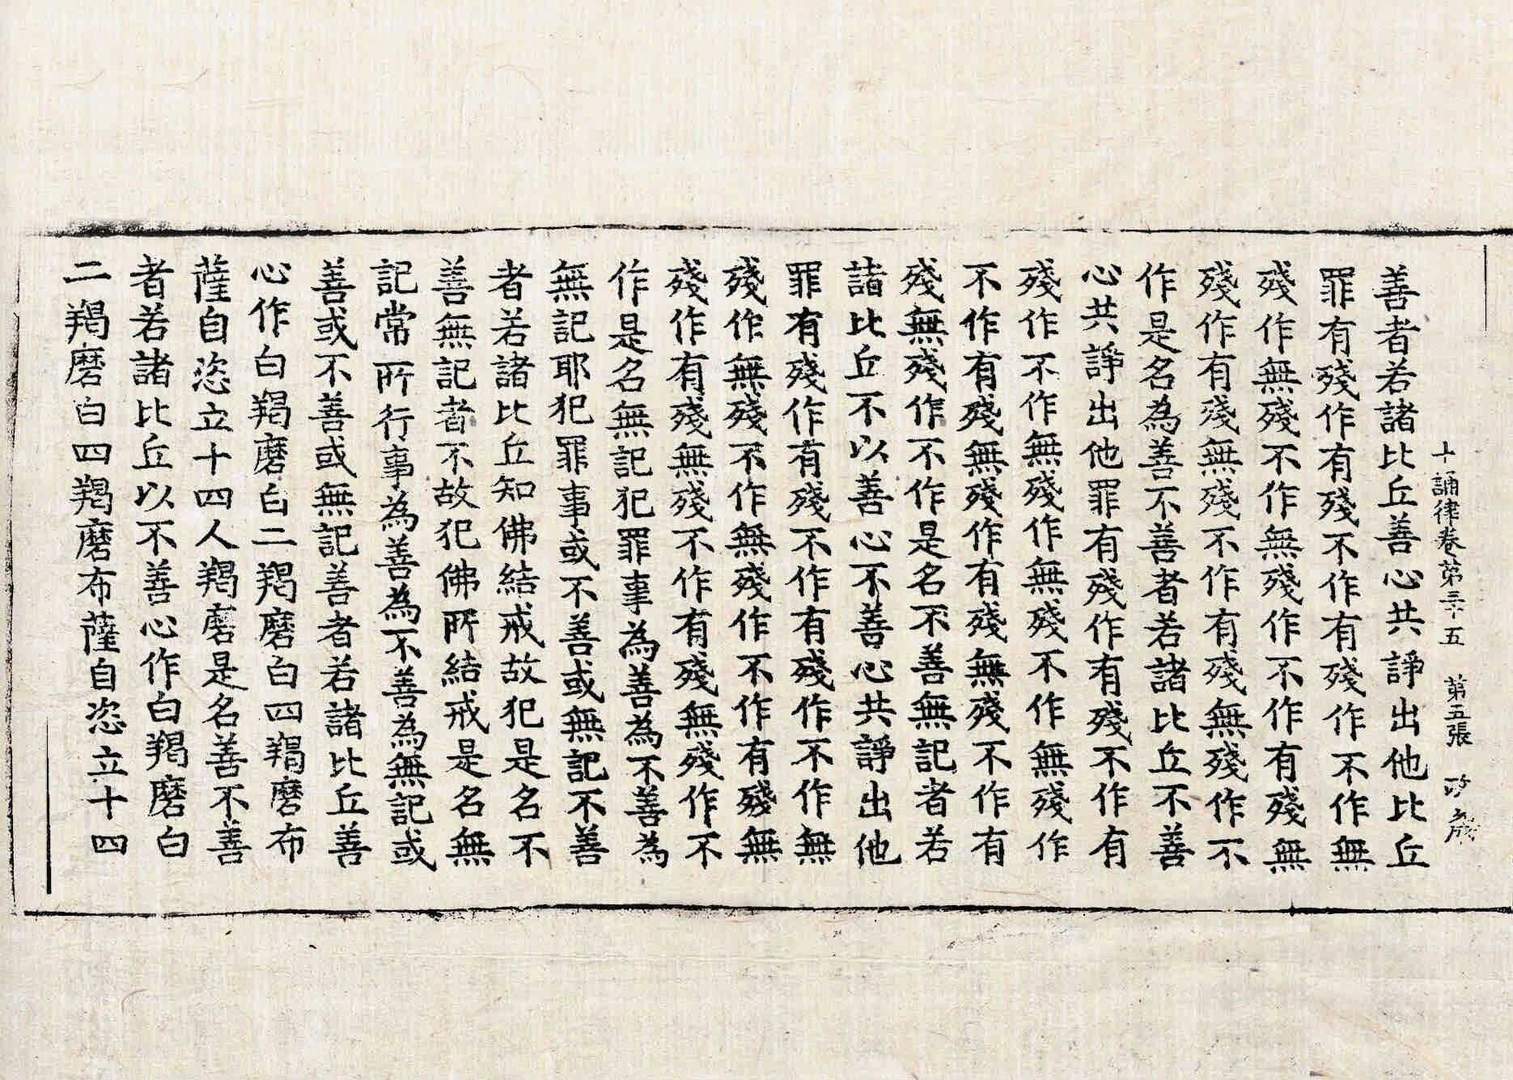 十誦律卷第三十五 第五張
善者若諸比丘善心共諍出他比丘
罪有殘作有殘不作有殘作不作無
殘作無殘不作無殘作不作有殘無
殘作有殘無殘不作有殘無殘作不
作是名為善不善者若諸比丘不善
心共諍出他罪有殘作有殘不作有
殘作不作無殘作無殘不作無殘作
不作有殘無殘作有殘無殘不作有
殘無殘作不作是名不善無記者若
諸比丘不以善心不善心共諍出他
罪有殘作有殘不作有殘作不作無
殘作無殘不作無殘作不作有殘無
殘作有殘無殘不作有殘無殘作不
作是名無記犯罪事為善為不善為
無記耶犯罪事或不善或無記不善
者若諸比丘知佛結戒故犯是名不
善無記者不故犯佛所結戒是名無
記常所行事為善為不善為無記或
善或不善或無記善者若諸比丘善
心作白羯磨白二羯磨白四羯磨布
薩自恣立十四人羯磨是名善不善
者若諸比丘以不善心作白羯磨白
二羯磨白四羯磨布薩自恣立十四